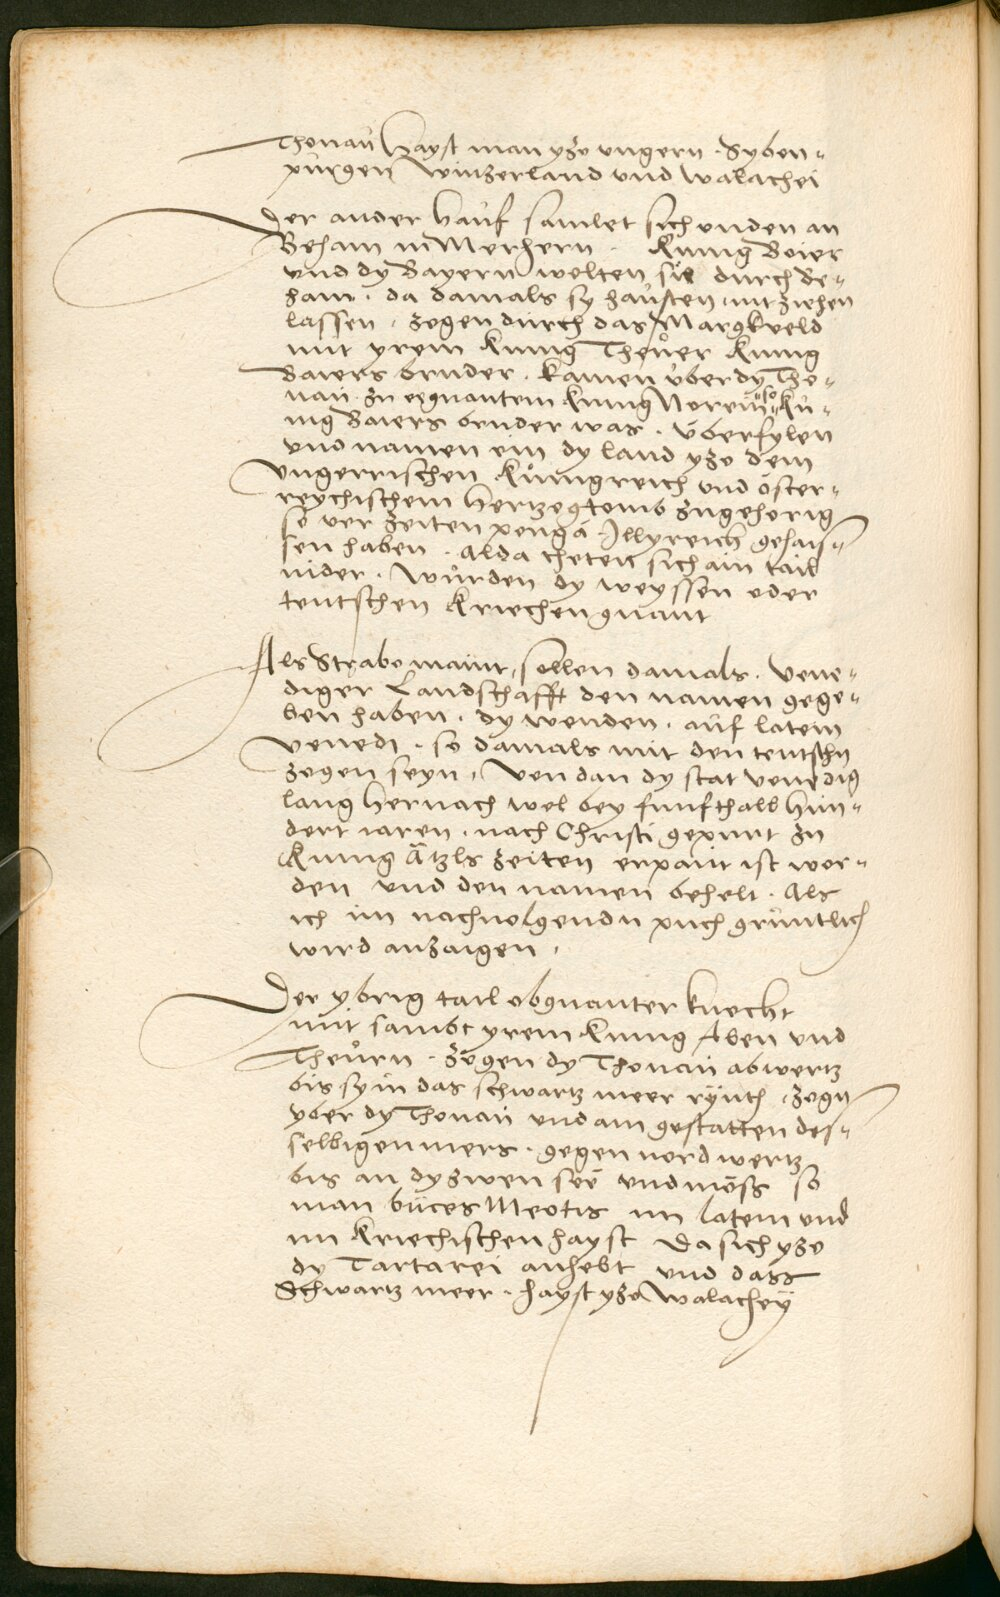 Thonaů hayst man yzo ungern . Syben-
pürgen Winzerland und Walachei
Der ander hauf samlet sich unden an
Beham in Merhern . Künig Boier
und dy Bayern wolten sie durch Be-
ham . da damals sy hausten nit ziehen
lassen . zogen durch das Margkveld
mit yrem Künig Theuer Künig
Baiers bruder . kamen über dy Tho-
nau zu egnantem Künig Norein so Kü-
nig Baiers bruder was . überfylen
und namen ein dy land yzo dem
Ungerrischen Künigreich und öster-
reychischem Hertzogtomb zugehörig
so vor zeiten Illyreich gehais-
sen haben . Alda theten sich ain tail
nider . Wurden dy weyssen oder
teutschen Kriechen gnant
Als Strabo maint, sollen damals . Vene-
diger Landschafft den namen gege-
ben haben . dy wenden . auf latein
Venedi . so damals mit den teutschn
zogen seyn, Von dan dy stat Venedig
lang hernach wol bey funfthalb hun-
dert iaren . nach Christi gepurt zu
Künig Ätzls zeiten erpaut ist wor-
den und den namen behelt . Als
ich im nachvolgendn puch grüntlich
wird anzaigen .
Der ybrig tail obgnanter knecht
mit sambt yrem Künig Aben und
Theürn . zogen dy Thonau abwertz
bis sy in das schwartz meer rynth . zogn
yber dy Thonau und am gestatten des-
selbigen mers . gegen nordwertz
bis an dy zwen see und möss so
man büces Meotis im latein und
im Kriechischen hayst Da sich yzo
dy Tartarei anhebt und dass
Schwartz meer . hayst yzo Walachey